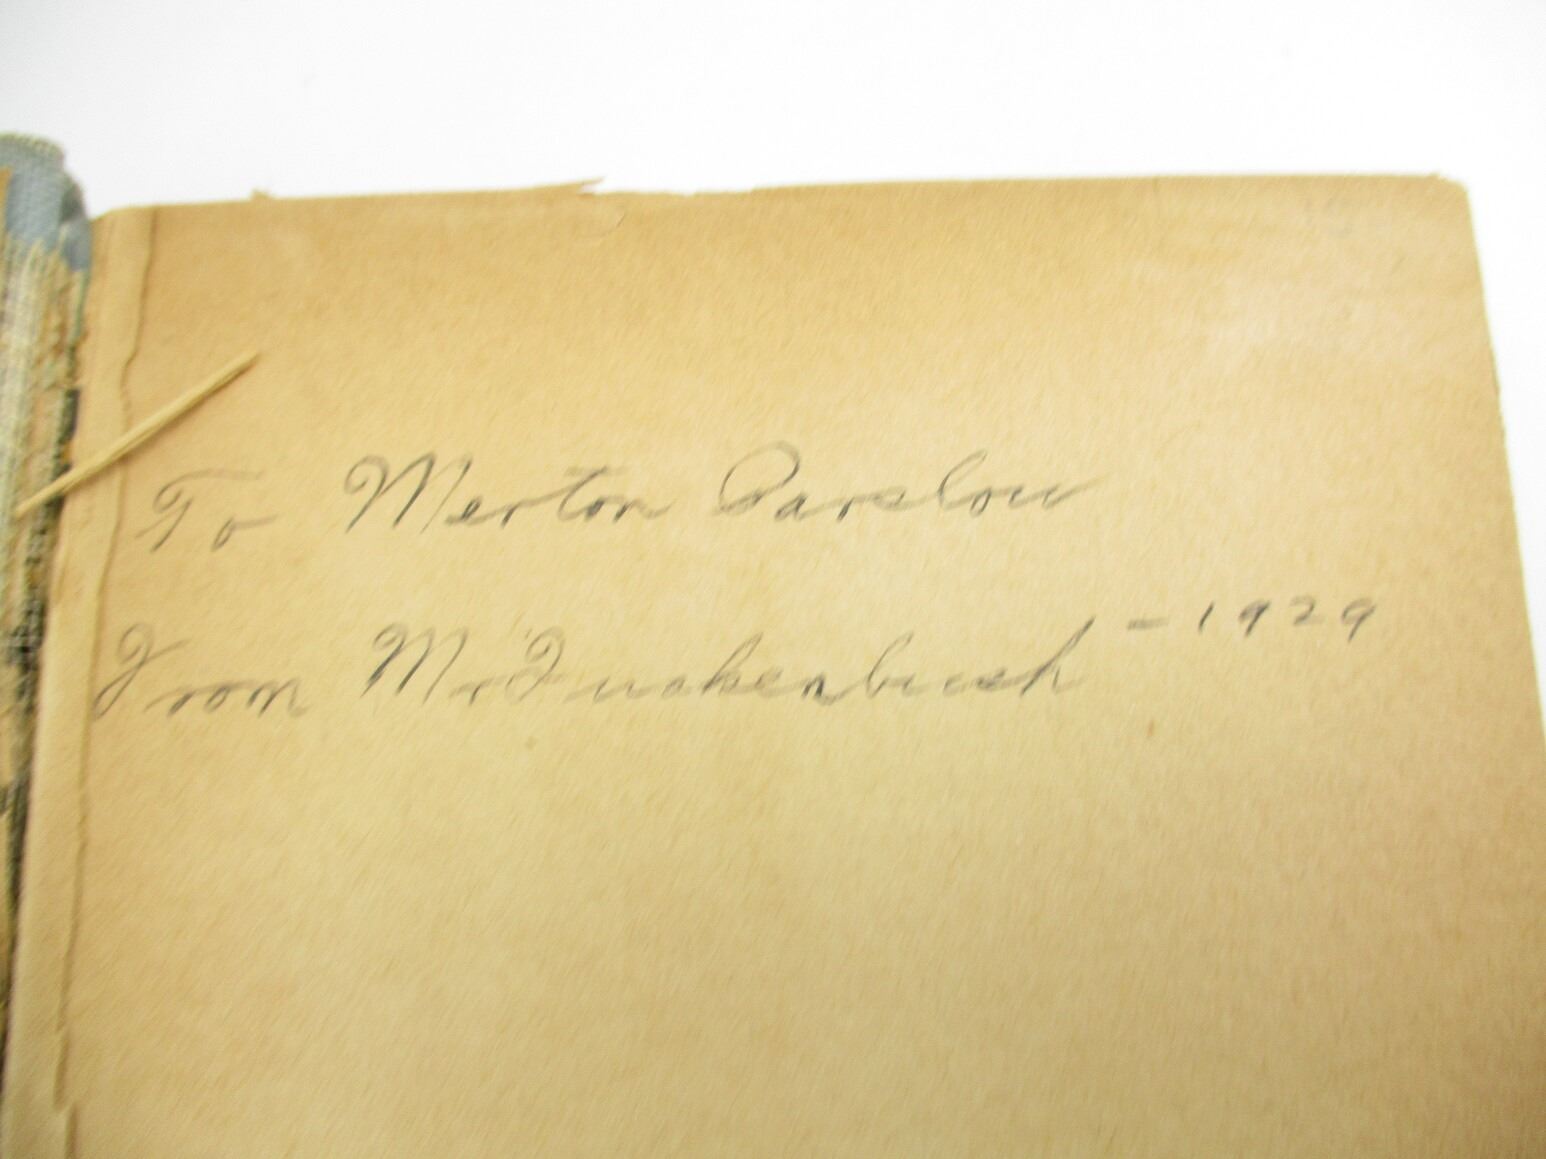 To Merton Parslow
From Mr Quckenbush - 1929